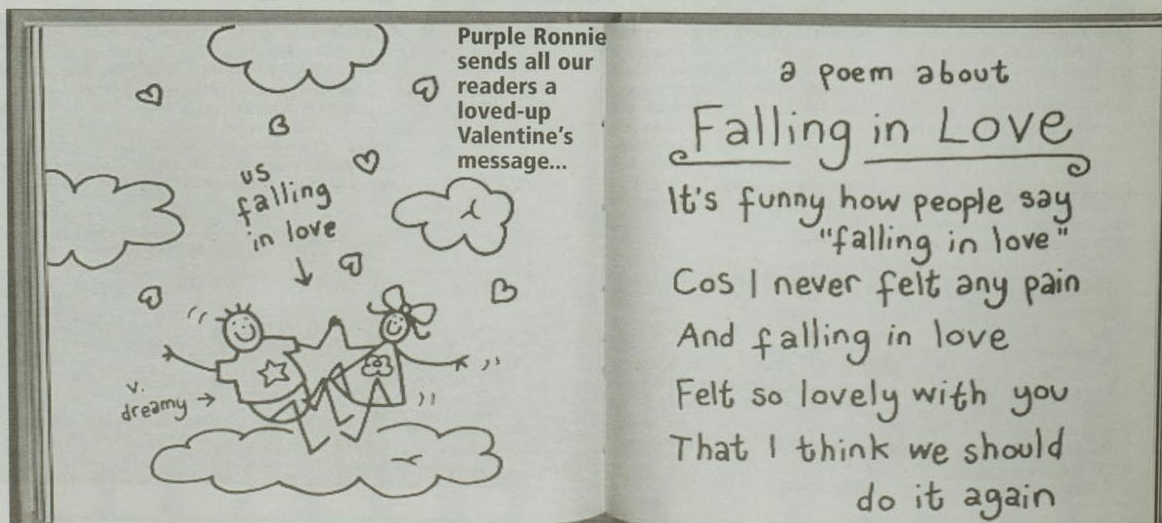 Purple Ronnie
sends all our
readers a
loved-up
Valentine's
message...
us
falling
in love
v.
dreamy
a poem about
Falling in Love
It's funny how people say
"falling in love"
Cos I never felt any pain
And falling in love
Felt so lovely with you
That I think we should
do it again